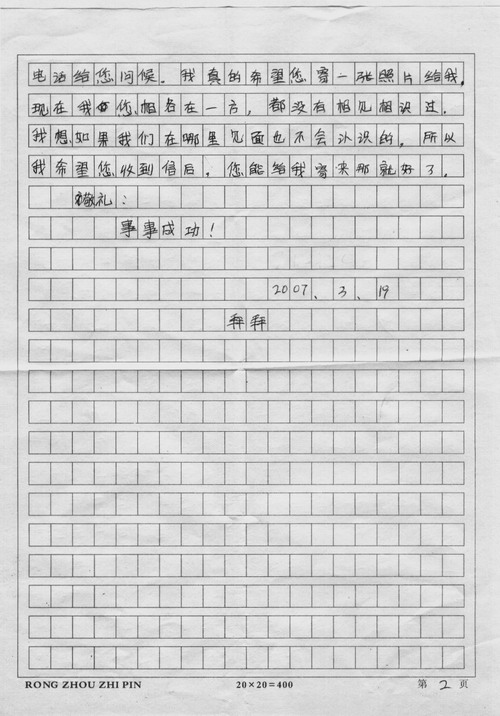 电话给您问候。我真的希望您寄一张照片给我。
现在我您相各在一方，都没有相见相识过。
我想如果我们在哪里见面也不会认识的。所以
我希望您收到信后。您能给我寄来那就好了。
敬礼：
事事成功！
2007、3、19
拜拜
RONG ZHOU ZHI PIN 20×20=400 第 2 页